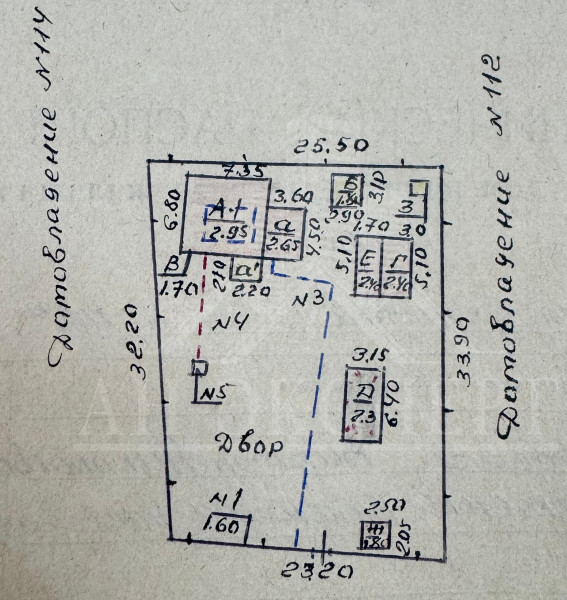 Домовладение N114
Домовладение N112
25.50
7.35
6.80
А+
2.95
3.60
а
2.65
4.50
Б
1.80
3.10
2.90
З
3.0
1.70
5.10
Е
2.40
Г
2.40
5.10
В
1.70
2.10
а'
2.20
N3
N4
32.20
33.90
3.15
Д
2.3
6.40
N5
Двор
N1
1.60
2.50
Ж
1.80
2.05
23.20